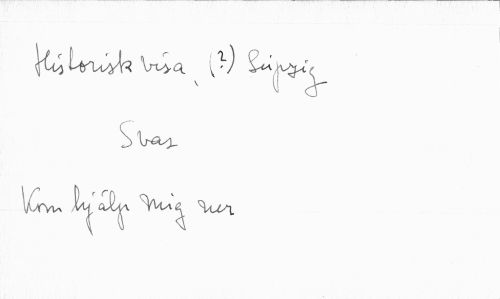 Historisk visa, (?) Leipzig
Svar
Kom hjälp mig ner